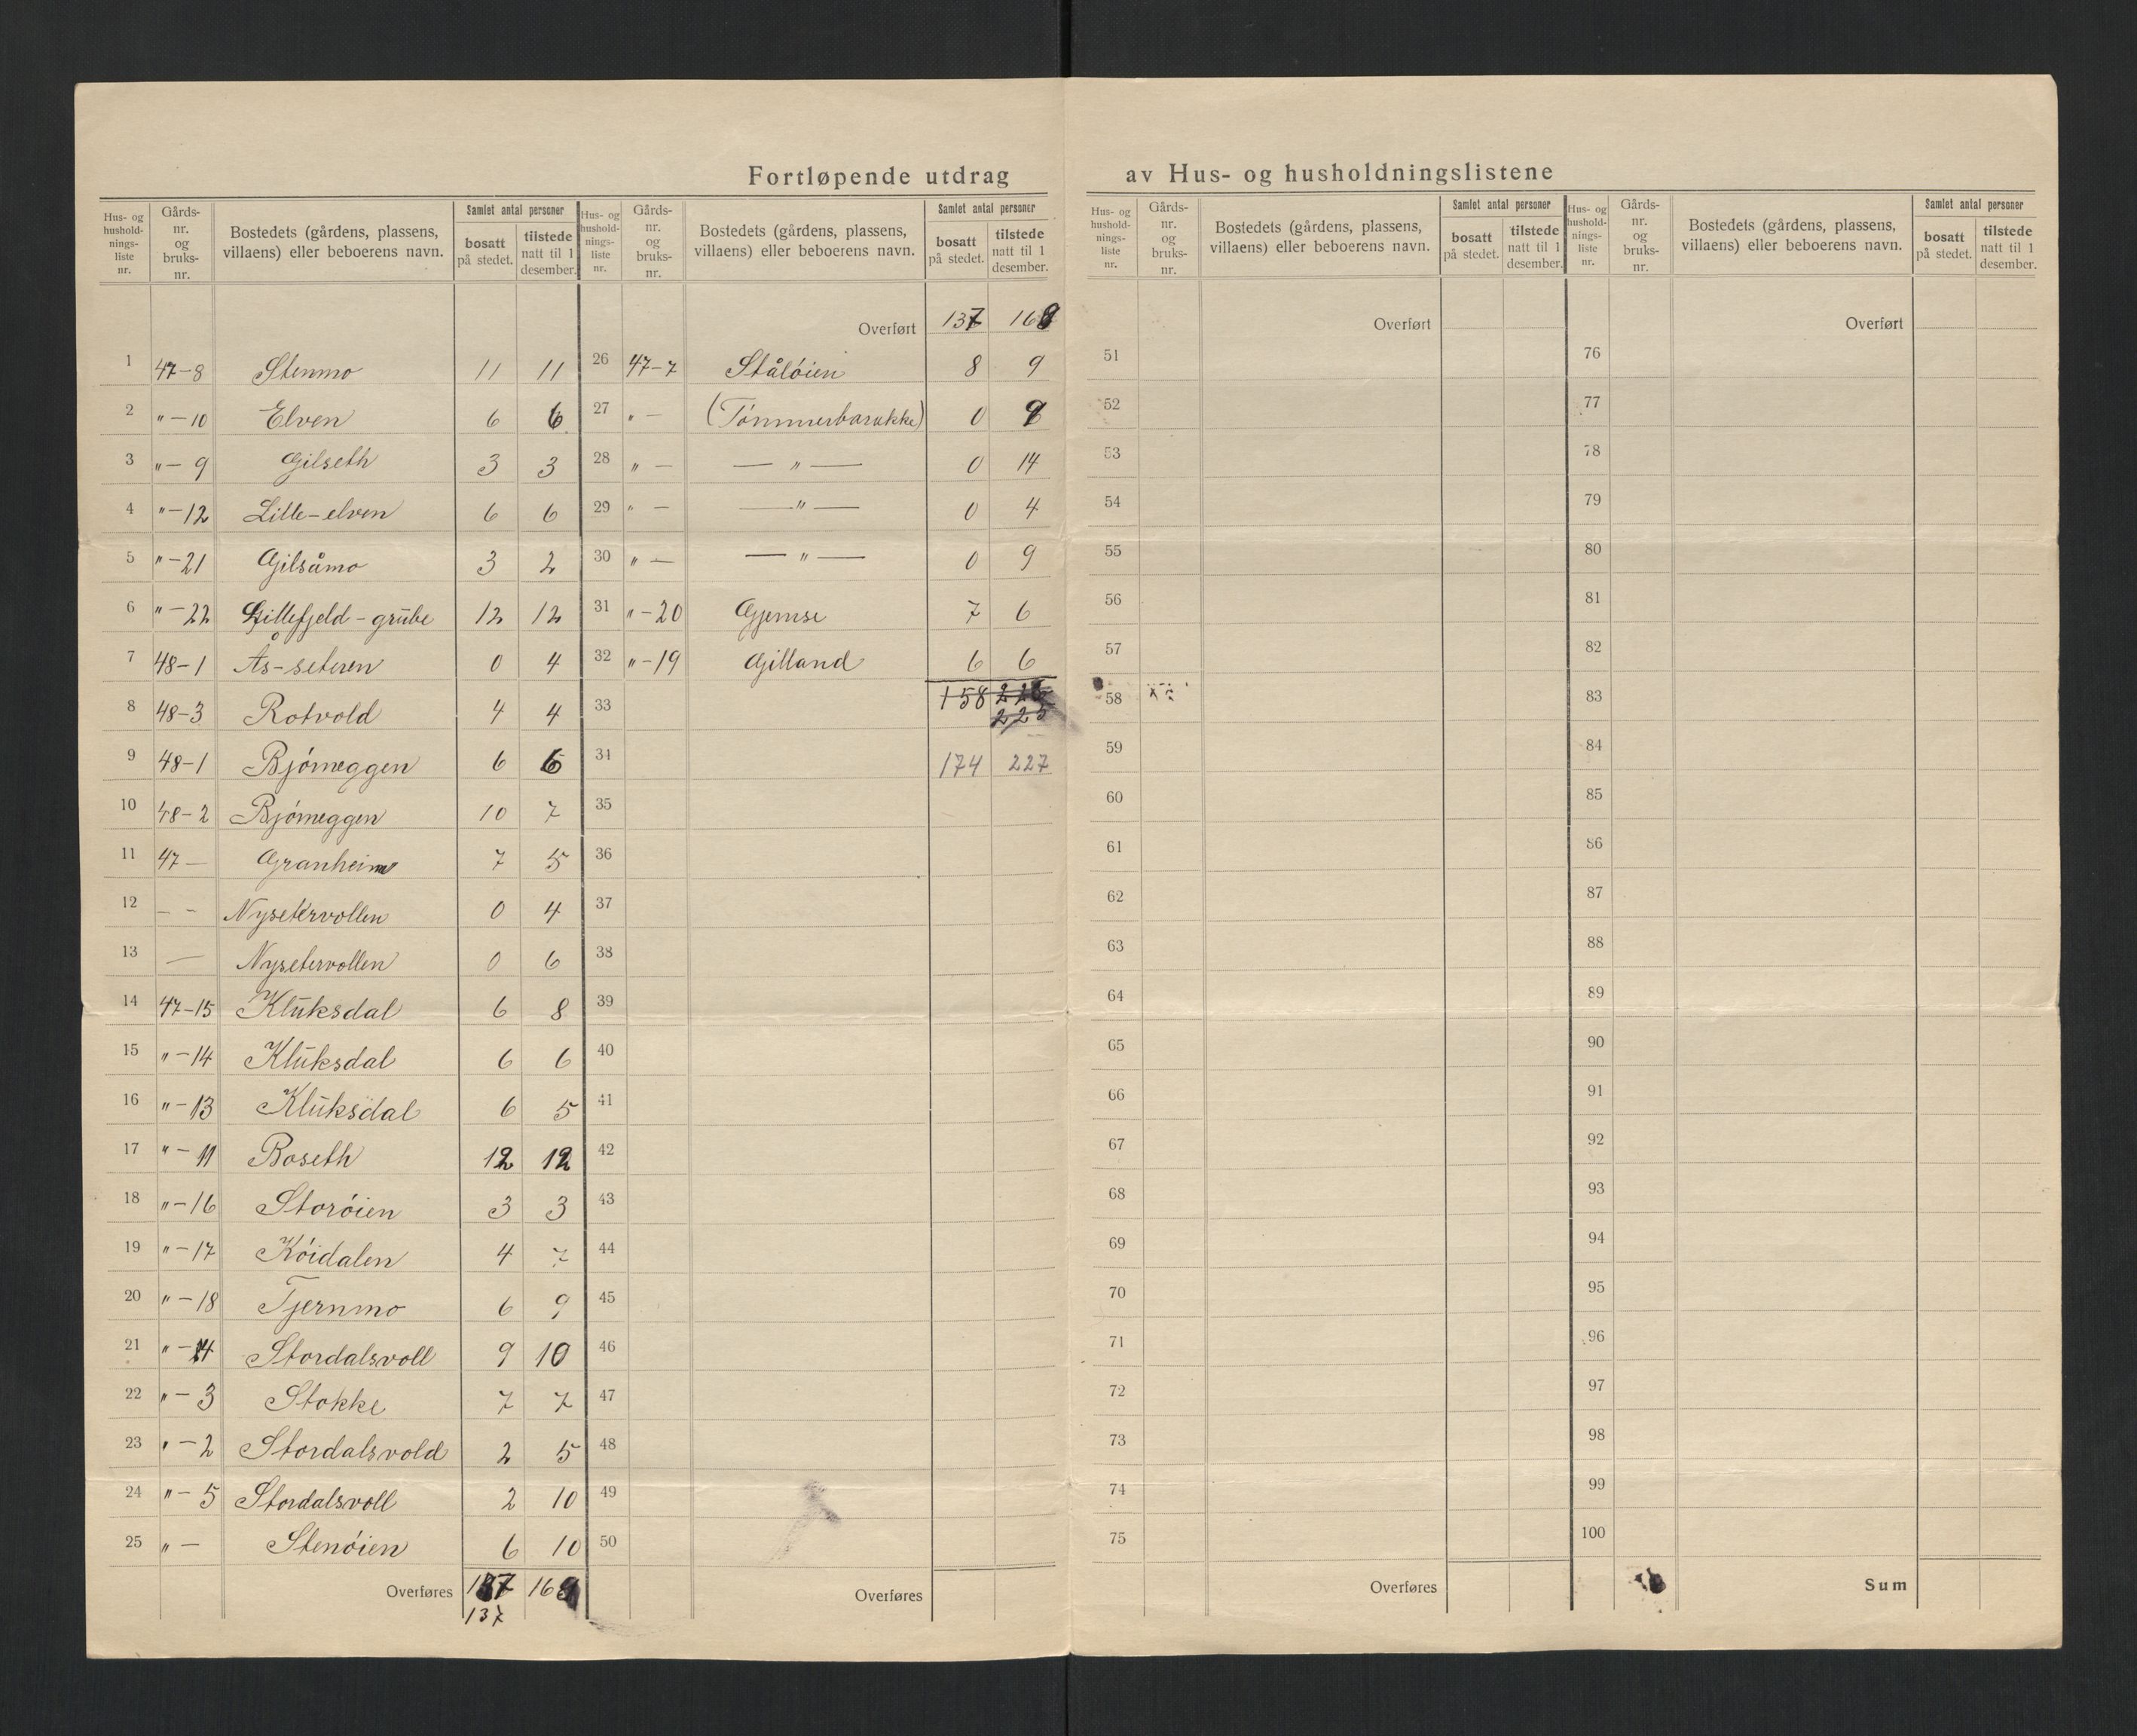 Fortløpende utdrag av Hus- og husholdningslistene
Hus- og husholdnings-liste nr. | Gårds-nr. og bruks-nr. | Bostedets (gårdens, plassens, villaens) eller beboerens navn. | Samlet antal personer | bosatt på stedet. | tilstede natt til 1 desember.
1 47-8 Stenmo 11 11
2 "-10 Elven 6 6
3 "-9 Gilseth 3 3
4 "-12 Lille-elven 6 6
5 "-21 Gilsåmo 3 2
6 "-22 Gillefjeld-grube 12 12
7 48-1 Ås-seteren 0 4
8 48-3 Rotvold 4 4
9 48-1 Bjørneggen 6 6
10 48-2 Bjørneggen 10 7
11 47- Granheim 7 5
12 - - Nysetervollen 0 4
13 — Nysetervollen 0 6
14 47-15 Kluksdal 6 8
15 "-14 Kluksdal 6 6
16 "-13 Kluksdal 6 5
17 "-11 Boseth 12 12
18 "-16 Storøien 3 3
19 "-17 Køidalen 4 7
20 "-18 Tjernmo 6 9
21 "-14 Stordalsvoll 9 10
22 "-3 Stokke 7 7
23 "-2 Stordalsvold 2 5
24 "-5 Stordalsvoll 2 10
25 "- Stenøien 6 10
Overføres 137 169
137
Hus- og husholdnings-liste nr. | Gårds-nr. og bruks-nr. | Bostedets (gårdens, plassens, villaens) eller beboerens navn. | Samlet antal personer | bosatt på stedet. | tilstede natt til 1 desember.
Overført 137 169
26 47-7 Ståløien 8 9
27 "- (Tømmerbarakke) 0 9
28 "- —"— 0 14
29 "- —"— 0 4
30 "- —"— 0 9
31 "-20 Gjemse 7 6
32 "-19 Gilland 6 6
33 158
225
34 174 227
35
36
37
38
39
40
41
42
43
44
45
46
47
48
49
50
Overføres
Hus- og husholdnings-liste nr. | Gårds-nr. og bruks-nr. | Bostedets (gårdens, plassens, villaens) eller beboerens navn. | Samlet antal personer | bosatt på stedet. | tilstede natt til 1 desember.
Overført
51
52
53
54
55
56
57
58
59
60
61
62
63
64
65
66
67
68
69
70
71
72
73
74
75
Overføres
Hus- og husholdnings-liste nr. | Gårds-nr. og bruks-nr. | Bostedets (gårdens, plassens, villaens) eller beboerens navn. | Samlet antal personer | bosatt på stedet. | tilstede natt til 1 desember.
Overført
76
77
78
79
80
81
82
83
84
85
86
87
88
89
90
91
92
93
94
95
96
97
98
99
100
Sum